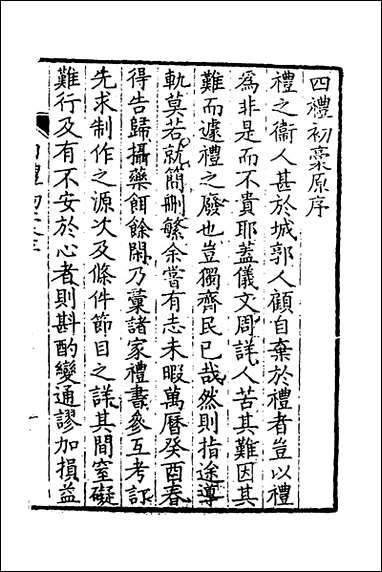 四禮初稾原序
禮之衞人甚於城郭人顧自棄於禮者豈以禮
為非是而不貴耶葢儀文周詳人苦其難因其
難而遽禮之廢也豈獨齊民已哉然則指途導
軌莫若就簡刪繁余嘗有志未暇萬曆癸酉春
得告歸攝藥餌餘閑乃蕫諸家禮書參互考訂
先求制作之源次及條件節目之詳其間窒礙
難行及有不安於心者則斟酌變通謬加損益